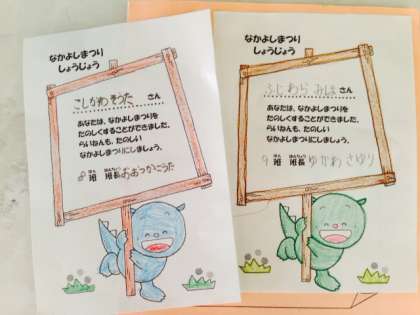 なかよしまつり
しょうじょう
こしかわ そうた さん
あなたは、なかよしまつりを
たのしくすることができました。
らいねんも、たのしい
なかよしまつりにしましょう。
8班 班長 おおつか こうた
なかよしまつり
しょうじょう
ふじわら みほ さん
あなたは、なかよしまつりを
たのしくすることができました。
らいねんも、たのしい
なかよしまつりにしましょう。
9班 班長 ゆかわ さゆり